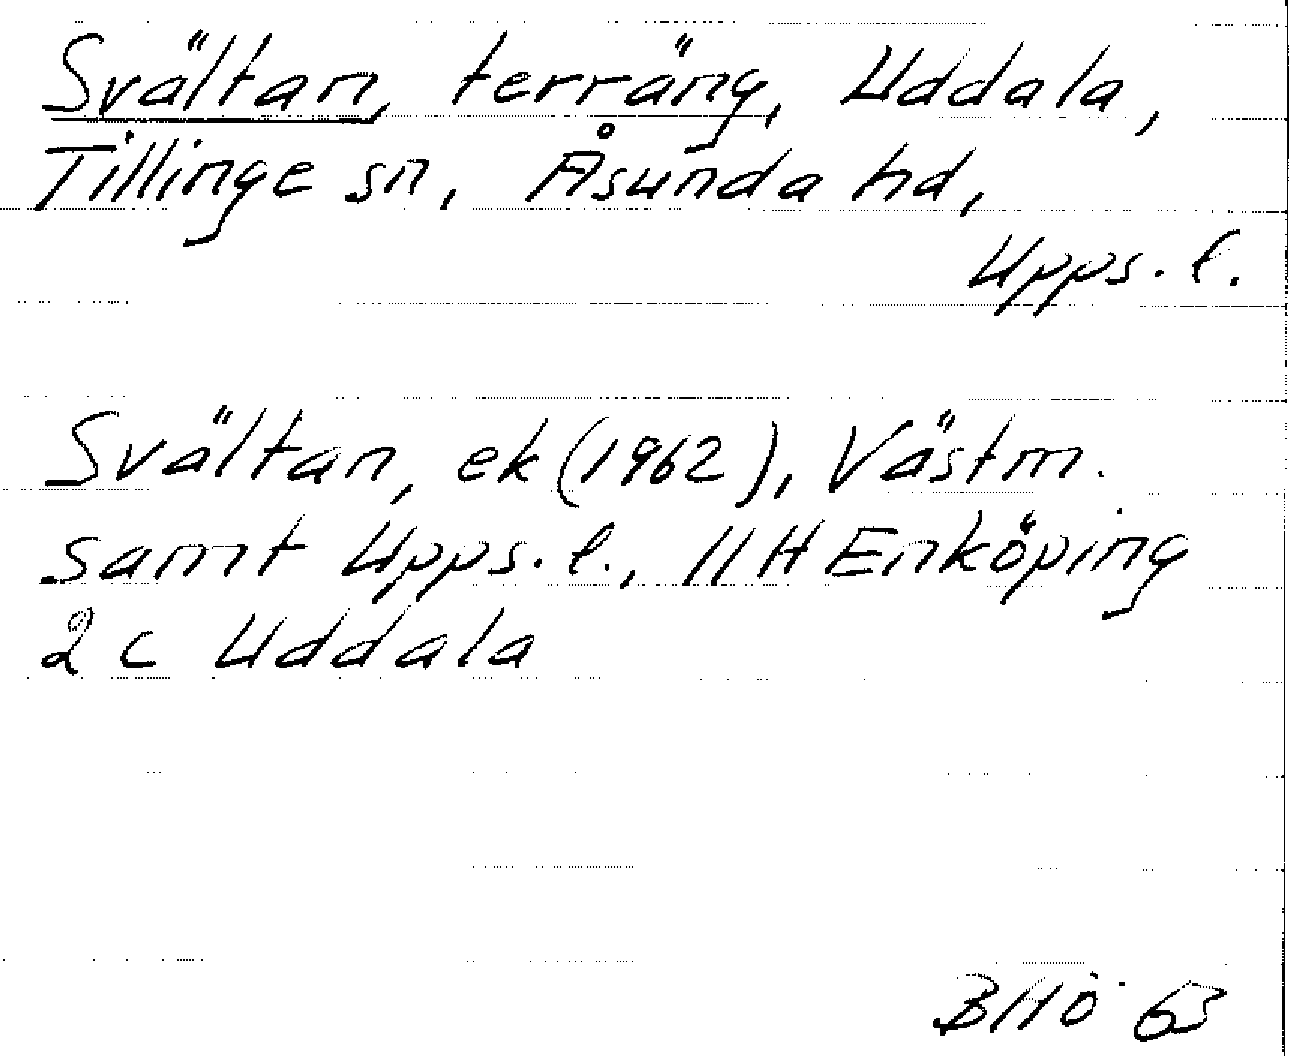 Svältan, terräng, Uddala,
Tillinge sn, Åsunda hd,
Upps. l.
Svältan, ek (1962), Västm.
samt Upps. l., 11H Enköping
2 c Uddala
BHÖ 63